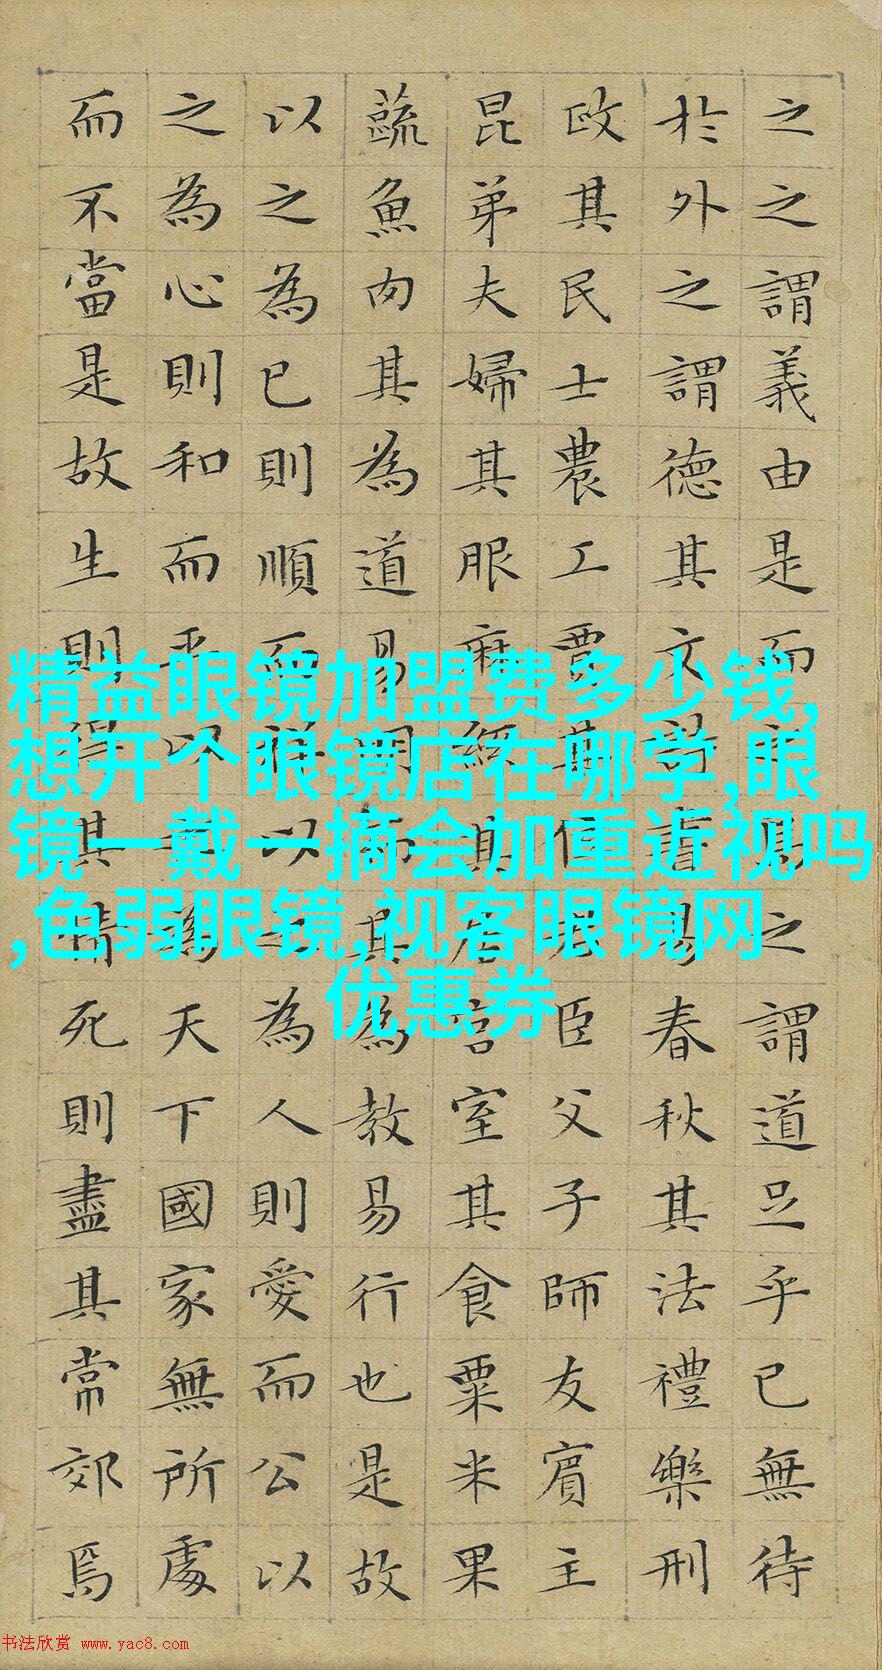 之之謂義由是而之焉之謂道足乎已無待
於外之謂德其文詩書易春秋其法禮樂刑
政其民士農工賈其位君臣父子師友賓主
昆弟夫婦其服麻絲其居宮室其食粟米果
蔬魚肉其為道易明而其為教易行也是故
以之為已則順而祥以之為人則愛而公以
之為心則和而平以之為天下國家無所處
而不當是故生則得其情死則盡其常郊焉
精益眼镜加盟费多少钱,
想开个眼镜店在哪学,眼
镜一戴一摘会加重近视吗
,色弱眼镜,视客眼镜网
优惠券
书法欣赏 www.yac8.com